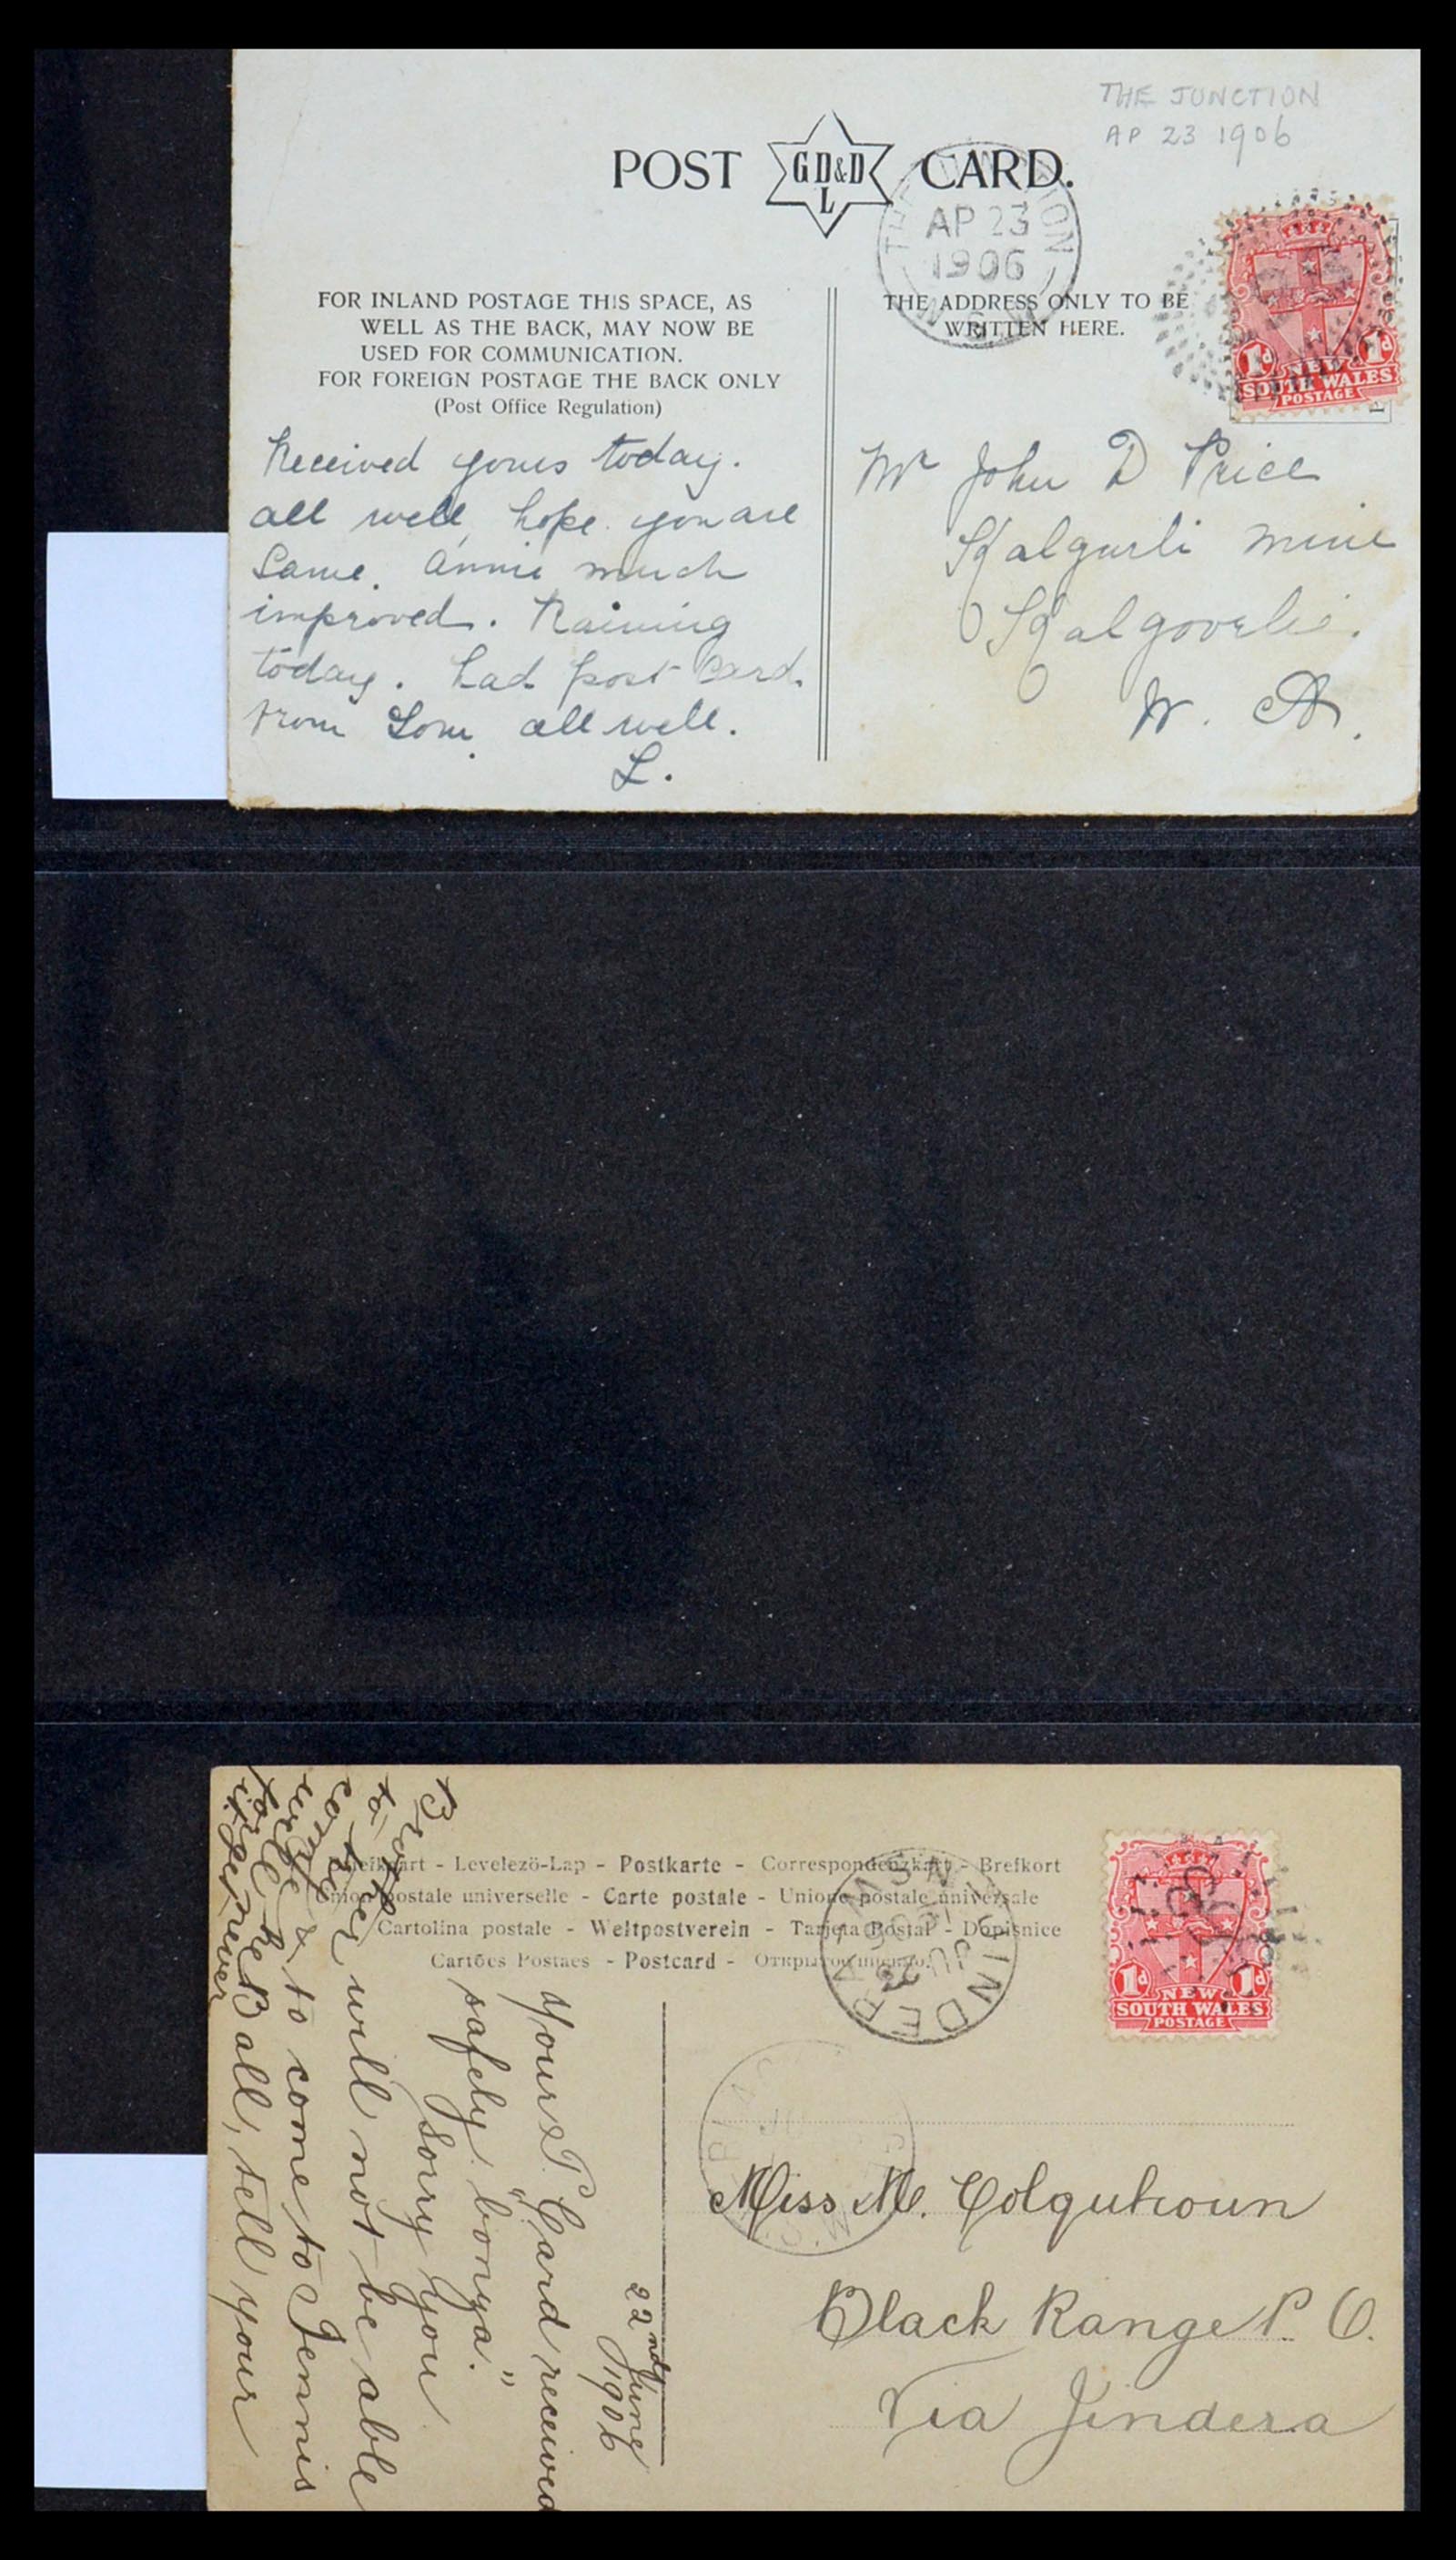 THE JUNCTION
AP 23 1906
POST GD&D L CARD.
THE JUNCTION
AP 23
1906
N.S.W
FOR INLAND POSTAGE THIS SPACE, AS
WELL AS THE BACK, MAY NOW BE
USED FOR COMMUNICATION.
FOR FOREIGN POSTAGE THE BACK ONLY
(Post Office Regulation)
THE ADDRESS ONLY TO BE
WRITTEN HERE.
1d NEW 1d
SOUTH WALES
POSTAGE
Received yours today.
all well, hope you are
Same. Annie much
improved. Raining
today. had post card.
from Tom. all well.
L.
Mr John D Price
Kalgurli Mine
Kalgoorlie.
W. A.
Briefkaart - Levelező-Lap - Postkarte - Correspondenzkarte - Brefkort
Union postale universelle - Carte postale - Unione postale universale
Cartolina postale - Weltpostverein - Tarjeta Postal - Dopisnice
Cartões Postaes - Postcard - Открытое письмо.
JINDERA
N.S.W
1d NEW 1d
SOUTH WALES
POSTAGE
22nd June
1906
Your P. Card received
safely "bonya."
Sorry you
Brother will not be able
to come to Tennis
tell your
Miss M. Colquhoun
Black Range P. O.
Via Jindera